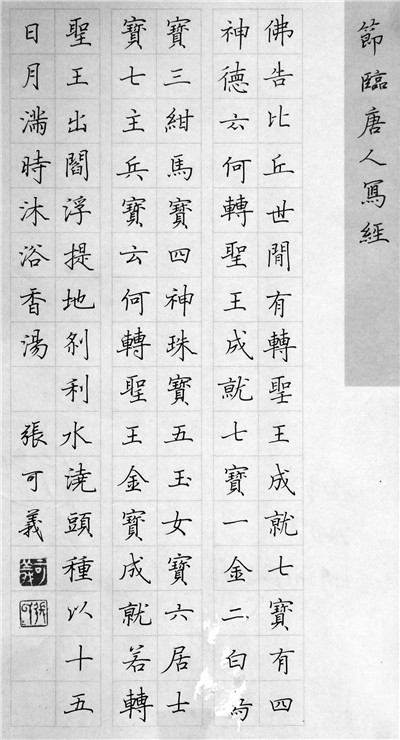 節臨唐人寫經
佛告比丘世間有轉聖王成就七寶有四
神德云何轉聖王成就七寶一金二白
寶三紺馬寶四神珠寶五玉女寶六居士
寶七主兵寶云何轉聖王金寶成就若轉
聖王出閻浮提地刹利水澆頭種以十五
日月滿時沐浴香湯 張可義